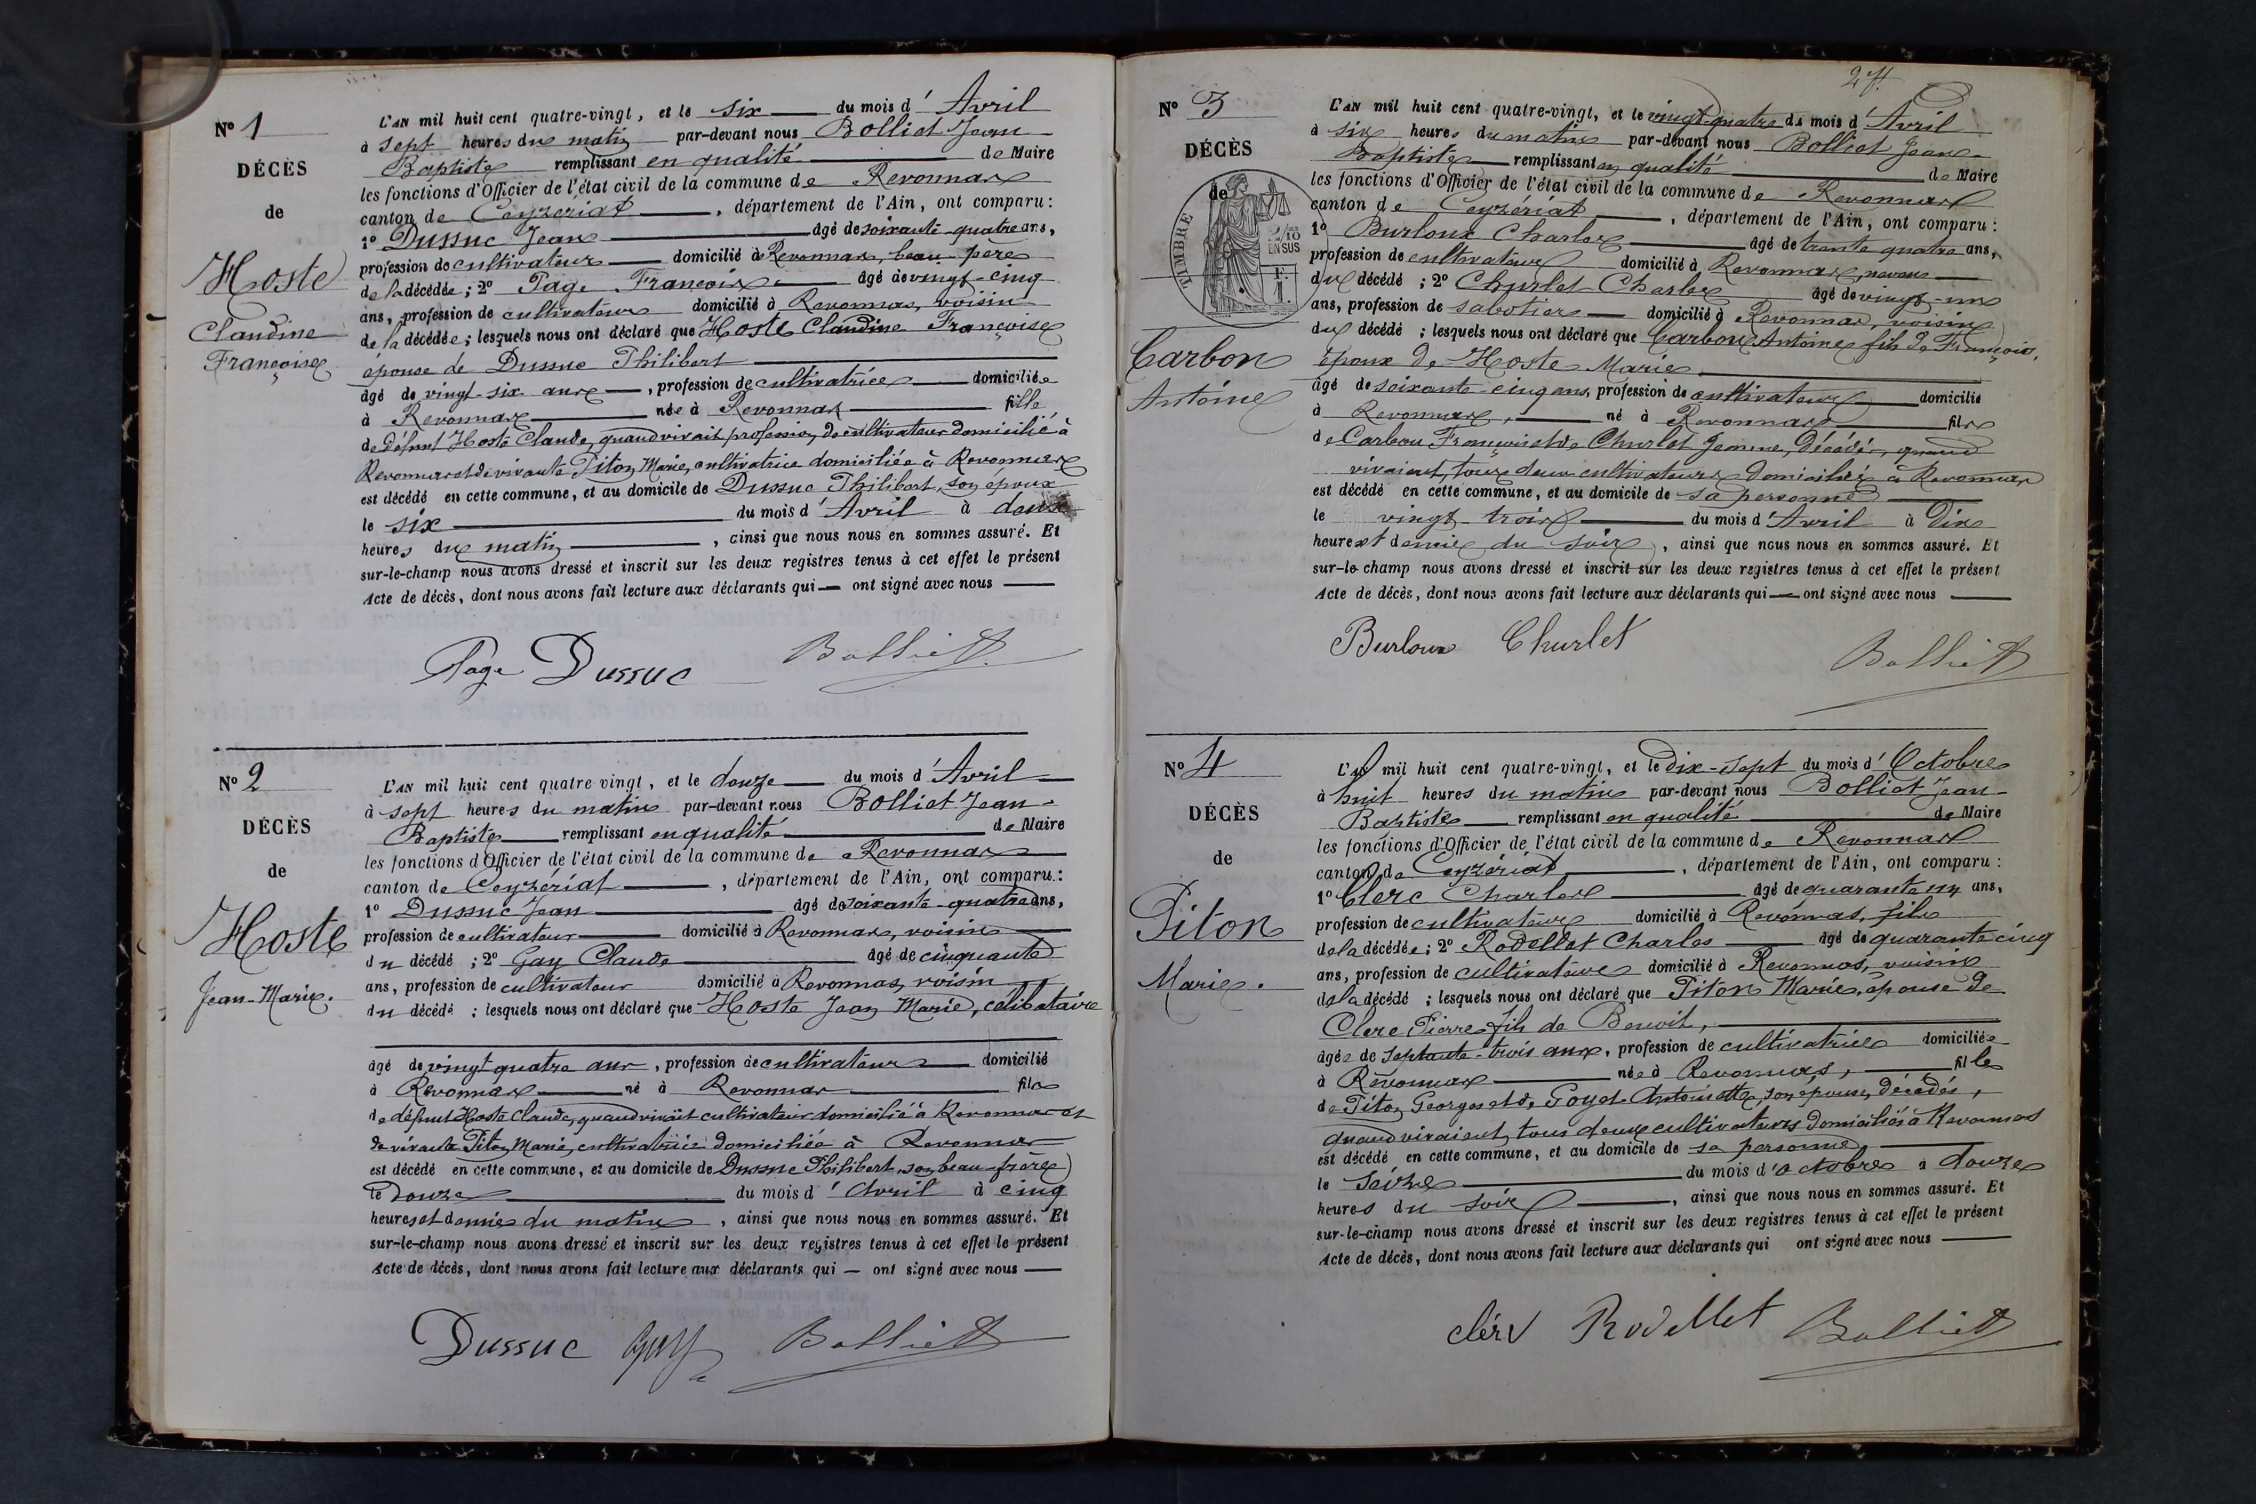 N° 1
DÉCÈS
de
Hoste
Claudine
Françoise
L'AN mil huit cent quatre-vingt, et le six du mois d'Avril
à sept heures du matin par-devant nous Bolliet Jean
Baptiste remplissant en qualité de Maire
les fonctions d'Officier de l'état civil de la commune de Revonnas
canton de Ceyzériat, département de l'Ain, ont comparu:
1° Dussuc Jean âgé de soixante-quatre ans,
profession de cultivateur domicilié à Revonnas, beau-père
de la décédée; 2° Page François âgé de vingt-cinq
ans, profession de cultivateur domicilié à Revonnas, voisin
de la décédée; lesquels nous ont déclaré que Hoste Claudine Françoise
épouse de Dussuc Philibert
âgé de vingt-six ans, profession de cultivatrice domiciliée
à Revonnas née à Revonnas fille
de défunt Hoste Claude, quand vivait profession de cultivateur domicilié à
Revonnas et de vivante Piton Marie, cultivatrice domiciliée à Revonnas
est décédé en cette commune, et au domicile de Dussuc Philibert, son époux
le six du mois d'Avril à deux
heures du matin, ainsi que nous nous en sommes assuré. Et
sur-le-champ nous avons dressé et inscrit sur les deux registres tenus à cet effet le présent
Acte de décès, dont nous avons fait lecture aux déclarants qui — ont signé avec nous
Page Dussuc Bolliet
N° 2
DÉCÈS
de
Hoste
Jean-Marie.
L'AN mil huit cent quatre-vingt, et le douze du mois d'Avril
à sept heures du matin par-devant nous Bolliet Jean-
Baptiste remplissant en qualité de Maire
les fonctions d'Officier de l'état civil de la commune de Revonnas
canton de Ceyzériat, département de l'Ain, ont comparu:
1° Dussuc Jean âgé de soixante-quatre ans,
profession de cultivateur domicilié à Revonnas, voisin
du décédé; 2° Gay Claude âgé de cinquante
ans, profession de cultivateur domicilié à Revonnas, voisin
du décédé; lesquels nous ont déclaré que Hoste Jean Marie, célibataire
âgé de vingt quatre ans, profession de cultivateur domicilié
à Revonnas né à Revonnas fils
de défunt Hoste Claude, quand vivait cultivateur domicilié à Revonnas et
de vivante Piton Marie, cultivatrice domiciliée à Revonnas
est décédé en cette commune, et au domicile de Dussuc Philibert, son beau-frère
le douze du mois d'Avril à cinq
heures et demie du matin, ainsi que nous nous en sommes assuré. Et
sur-le-champ nous avons dressé et inscrit sur les deux registres tenus à cet effet le présent
Acte de décès, dont nous avons fait lecture aux déclarants qui — ont signé avec nous
Dussuc Gay Bolliet
N° 3
DÉCÈS
de
TIMBRE
2/10
EN SUS
Carbon
Antoine
L'AN mil huit cent quatre-vingt, et le vingt-quatre du mois d'Avril
à six heures du matin par-devant nous Bolliet Jean-
Baptiste remplissant en qualité de Maire
les fonctions d'Officier de l'état civil de la commune de Revonnas
canton de Ceyzériat, département de l'Ain, ont comparu:
1° Burloux Charles âgé de trente quatre ans,
profession de cultivateur domicilié à Revonnas, neveu
du décédé; 2° Churlet Charles âgé de vingt-un
ans, profession de sabotier domicilié à Revonnas, voisin
du décédé; lesquels nous ont déclaré que Carbon Antoine fils de François,
époux de Hoste Marie
âgé de soixante-cinq ans, profession de cultivateur domicilié
à Revonnas, né à Revonnas fils
de Carbon François et de Churlet Jeanne, Décédés, quand
vivaient, tous deux cultivateurs domiciliés à Revonnas
est décédé en cette commune, et au domicile de sa personne
le vingt-trois du mois d'Avril à Dix
heures et demie du soir, ainsi que nous nous en sommes assuré. Et
sur-le-champ nous avons dressé et inscrit sur les deux registres tenus à cet effet le présent
Acte de décès, dont nous avons fait lecture aux déclarants qui — ont signé avec nous
Burloux Churlet Bolliet
N° 4
DÉCÈS
de
Piton
Marie.
L'AN mil huit cent quatre-vingt, et le dix-sept du mois d'Octobre
à huit heures du matin par-devant nous Bolliet Jean-
Baptiste remplissant en qualité de Maire
les fonctions d'Officier de l'état civil de la commune de Revonnas
canton de Ceyzériat, département de l'Ain, ont comparu:
1° Clerc Charles âgé de quarante un ans,
profession de cultivateur domicilié à Revonnas, fils
de la décédée; 2° Rodellet Charles âgé de quarante cinq
ans, profession de cultivateur domicilié à Revonnas, voisin
de la décédé; lesquels nous ont déclaré que Piton Marie, épouse de
Clerc Pierre fils de Benoit,
âgée de septante-trois ans, profession de cultivatrice domiciliée
à Revonnas née à Revonnas, fille
de Piton Georges et de Goyet Antoinette, son épouse, décédés,
quand vivaient, tous deux cultivateurs domiciliés à Revonnas
est décédé en cette commune, et au domicile de sa personne,
le seize du mois d'octobre à douze
heures du soir, ainsi que nous nous en sommes assuré. Et
sur-le-champ nous avons dressé et inscrit sur les deux registres tenus à cet effet le présent
Acte de décès, dont nous avons fait lecture aux déclarants qui ont signé avec nous
clérc Rodellet Bolliet